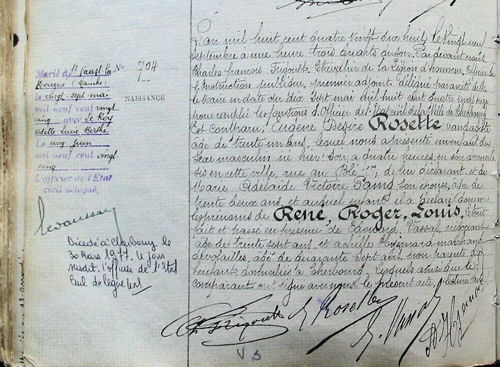 No 704
NAISSANCE
Marié à St Vaast la
Hougue (Manche)
le vingt-sept mai
mil neuf cent vingt
cinq avec Le Roy
Odette Lucie Berthe
Le cinq juin
mil neuf cent vingt
cinq
L'officier de l'Etat
civil délégué,
Levaussay
Décédé à Cherbourg le
30 Mars 1977. Le jour
suivant. L'officier de l'Etat
Civil délégué
L'an mil huit cent quatre vingt dix huit, le vingt neuf
septembre a une heure trois quarts du soir, Par devant nous
Charles François Frigoult, Chevalier de la Légion d'honneur, Officier de
l'Instruction publique, premier adjoint, délégué par arrêté de
le Maire en date du dix sept mai mil huit cent quatre vingt
pour remplir les fonctions d'Officier de l'Etat civil de la Ville de Cherbourg
Est Comparu, Eugène Désiré Rosette
âgé de trente un ans, lequel nous a présenté un enfant du
sexe masculin, né hier soir à quatre heures, en son domicile
sis en cette ville, rue du lui déclarant et de
Marie Adélaïde Victoire son épouse, âgée de
trente deux ans, et auquel enfant il a déclaré donner
les prénoms de René, Roger, Louis,
fait et passé en présence de Vassal, négociant
âgé de trente sept ans, et
âgé de quarante sept ans, non parents de
l'enfant, domiciliés à Cherbourg, lesquels ainsi que le
comparant ont signé avec nous le présent acte, lecture faite
Frigoult E Rosette Vassal